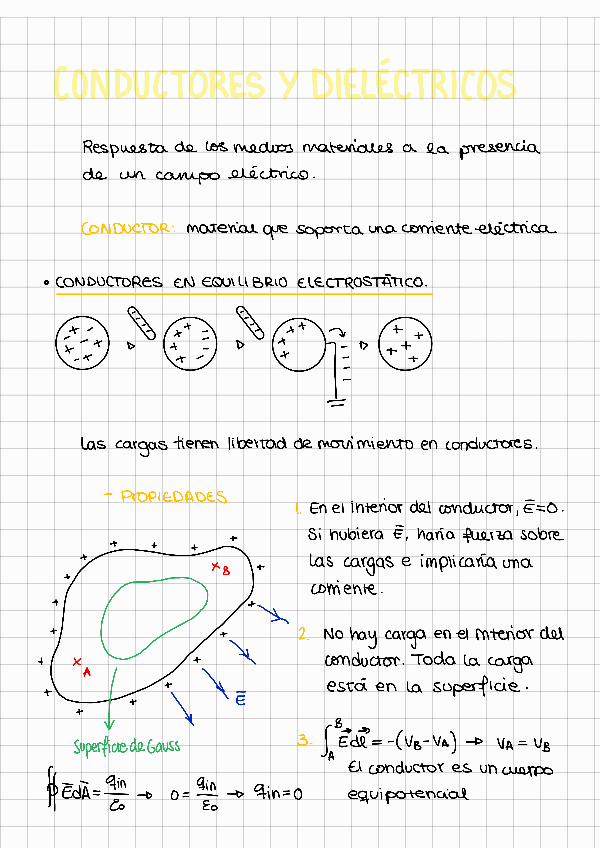 CONDUCTORES Y DIELÉCTRICOS
Respuesta de los medios materiales a la presencia
de un campo eléctrico.
CONDUCTOR: material que soporta una corriente eléctrica
• CONDUCTORES EN EQUILIBRIO ELECTROSTÁTICO.
Las cargas tienen libertad de movimiento en conductores.
- PROPIEDADES
1. En el interior del conductor, E̅=0.
Si hubiera E̅, haría fuerza sobre
las cargas e implicaría una
corriente.
2. No hay carga en el interior del
conductor. Toda la carga
está en la superficie.
3. ∫_A^B E⃗dl⃗ = -(V_B - V_A) → V_A = V_B
El conductor es un cuerpo
equipotencial
B
A
E̅
Superficie de Gauss
∯ E̅dA̅ = q_in/ε₀ → 0 = q_in/ε₀ → q_in = 0